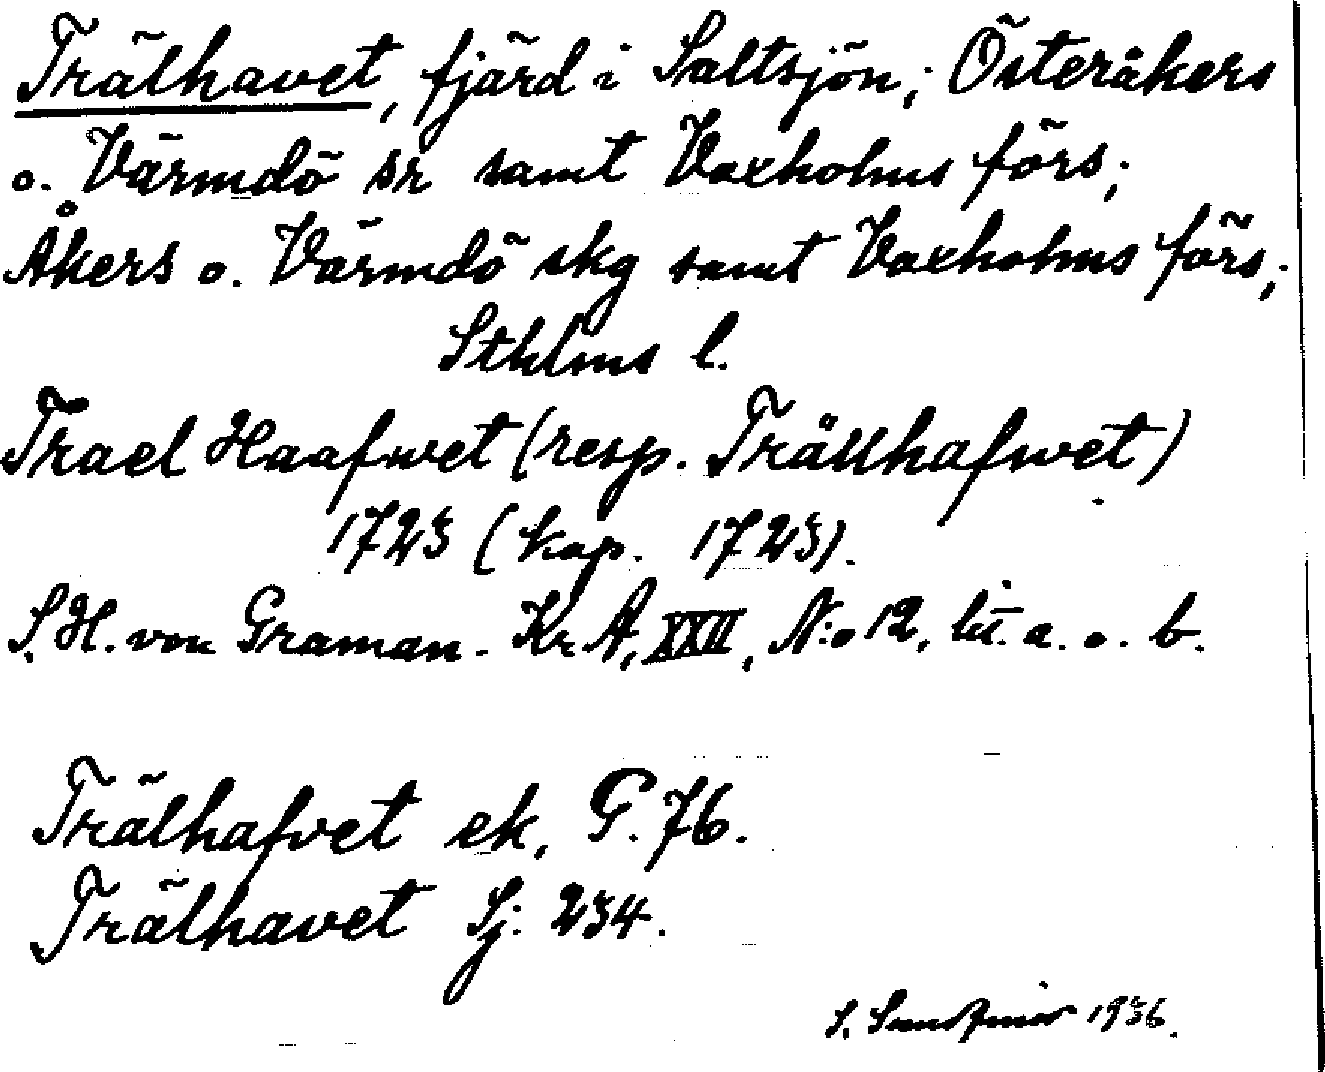 Trälhavet, fjärd i Saltsjön; Österåkers
o. Värmdö sr samt Vaxholms förs;
Åkers o. Värmdö skg samt Vaxholms förs;
Sthlms l.
Trael Haafwet (resp. Trällhafwet)
1723 (kop. 1723).
S. H. von Graman. Kr A, XXII, N:o 12, litt. a. o. b.
Trälhafvet ek, G. 76.
Trälhavet Sj: 234.
S. 1936.